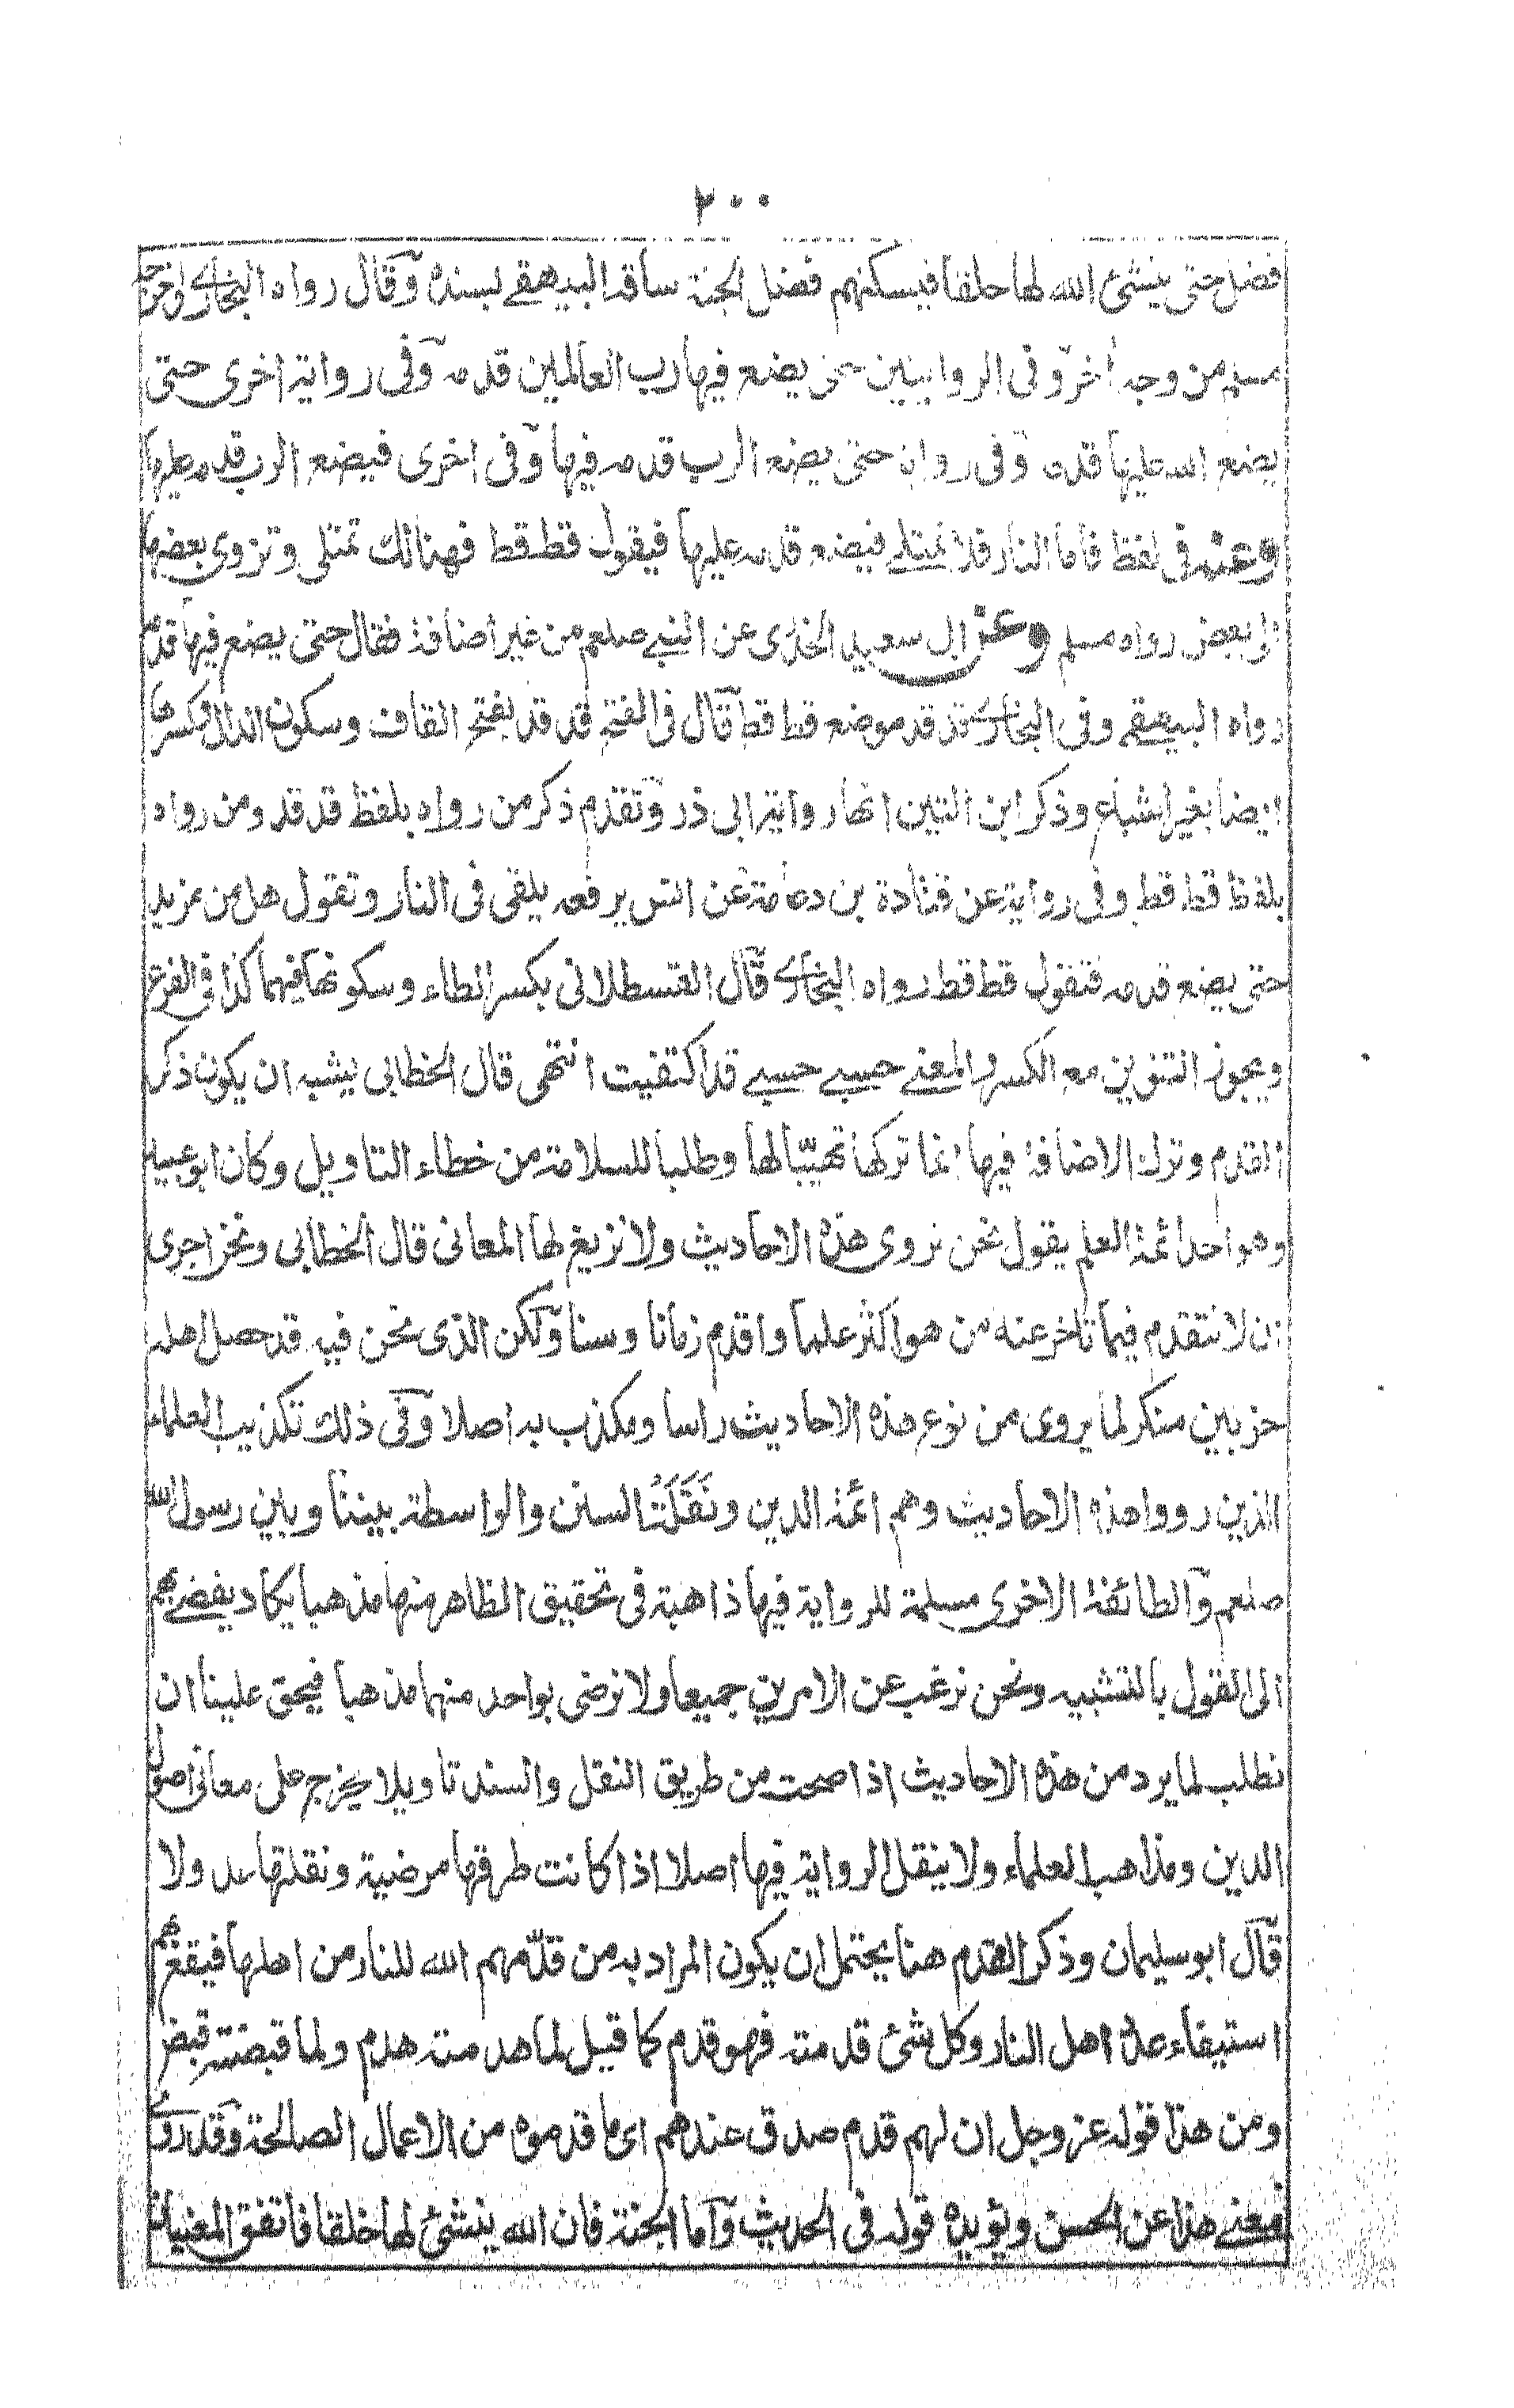 ٢٠٠
فضل حتى ينشئ الله لها خلقا فيسكنهم فضل الجنة ساقه البيهقے بسنده وقال رواه البخارے واخرجه
مسلم من وجه أخر وفى الروايتين حتى يضع فيها رب العالمين قدمه وفى رواية اخرى حتى
يضع الله عليها قدمه وفى رواية حتى يضع الرب قدمه فيها وفى اخرى فيضع الرب قدمه عليها
وعنه فى لفظ فاما النار فلا تمتلے فيضع قدمه عليها فيقول قط قط فهنالك تمتلى وتزوى بعضها
الى بعض رواه مسلم وعن ابى سعيد الخدرى عن النبے صلعم من غير اضافة فقال حتى يضع فيها قدم
رواه البيهقے وفى البخارے قد قد موضع قط قط قال فى الفتح قد قد بفتح القاف وسكون الدال وكسرها
ايضا بغير اشباع وذكر ابن التين انها رواية ابى ذر وتقدم ذكر من رواه بلفظ قد قد ومن رواه
بلفظ قط قط وفى رواية عن قتادة بن دعامة عن انس يرفعه يلقى فى النار وتقول هل من مزيد
حتى يضع قدمه فتقول قط قط رواه البخارے قال القسطلانى بكسر الطاء وسكونها فيهما كذا فى الفرع
ويجوز التنوين مع الكسر والمعنے حسبے حسبے قد اكتفيت انتهى قال الخطابى يشبه ان يكون ذكر
القدم وترك الاضافة فيها انما تركها تهيّبا لها وطلبا للسلامة من خطاء التاويل وكان ابو عبيد
وهو احد ائمة العلم يقول نحن نروى هذه الاحاديث ولا نزيغ لها المعانى قال الخطابى ونحن احرى
ان لا نتقدم فيما تاخر عنه من هو اكثر علما واقدم زمانا وسنا ولكن الذى نحن فيه قد حصل اهله
حزبين منكر لما يروى من نوع هذه الاحاديث راسا ومكذب به اصلا وفى ذلك تكذيب العلماء
الذين رووا هذه الاحاديث وهم ائمة الدين ونَقَلَةُ السنن والواسطة بيننا وبين رسول الله
صلعم والطائفة الاخرى مسلمة للرواية فيها ذاهبة فى تحقيق الظاهر منها مذهبا يكاد يفضے بهم
الى القول بالتشبيه ونحن نرغب عن الامرين جميعا ولا نرضى بواحد منهما مذهبا فيحق علينا ان
نطلب لما يرد من هذه الاحاديث اذا صحت من طريق النقل والسند تاويلا يخرج على معانى اصول
الدين ومذاهب العلماء ولا ينقل الرواية فيها اصلا اذا كانت طرقها مرضية ونقلتها عدولا
قال ابو سليمان وذكر القدم هنا يحتمل ان يكون المراد به من قدّمهم الله للنار من اهلها فيقع بهم
استيفاء عدد اهل النار وكل شئ قدمته فهو قدم كما قيل لما هدمته هدم ولما قبضته قبض
ومن هذا قوله عز وجل ان لهم قدم صدق عندهم اى ما قدموه من الاعمال الصالحة وقد روے
معنے هذا عن الحسن ويؤيده قوله فى الحديث واما الجنة فان الله ينشئ لها خلقا فاتفق المعنيان